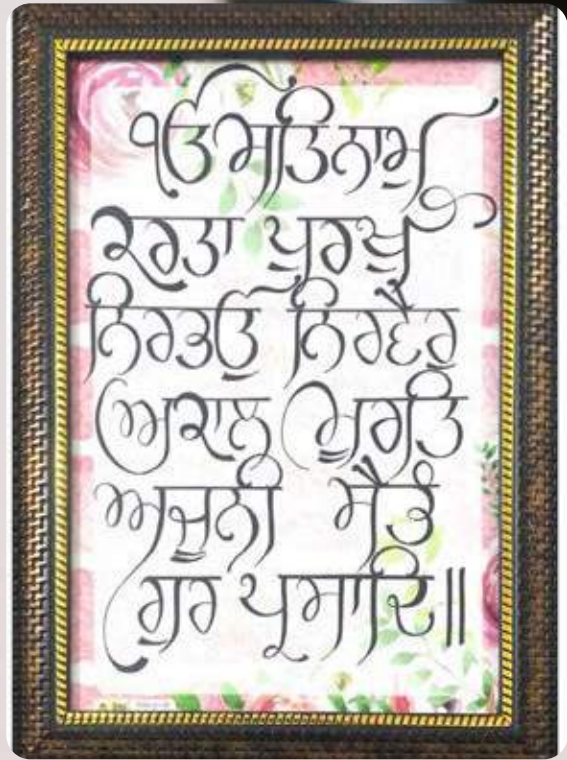 ੴ ਸਤਿਨਾਮੁ
ਕਰਤਾ ਪੁਰਖੁ
ਨਿਰਭਉ ਨਿਰਵੈਰੁ
ਅਕਾਲ ਮੂਰਤਿ
ਅਜੂਨੀ ਸੈਭੰ
ਗੁਰ ਪ੍ਰਸਾਦਿ॥